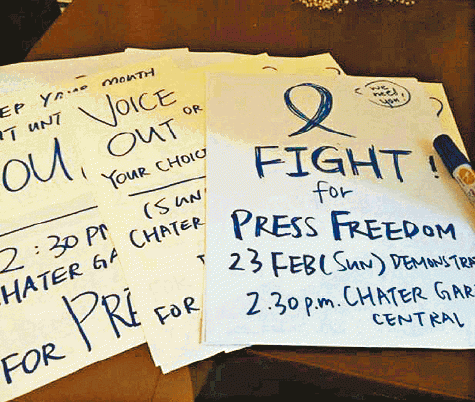 EP YOUR MOUTH
OU,
2:30 PM
CHATER GA
FOR PRE
VOICE
OUT OR
YOUR CHOIC
(SUN
CHATER
FOR
we
need
you
FIGHT!
for
PRESS FREEDOM
23 FEB (SUN) DEMONSTRA
2.30p.m. CHATER GAR
CENTRAL